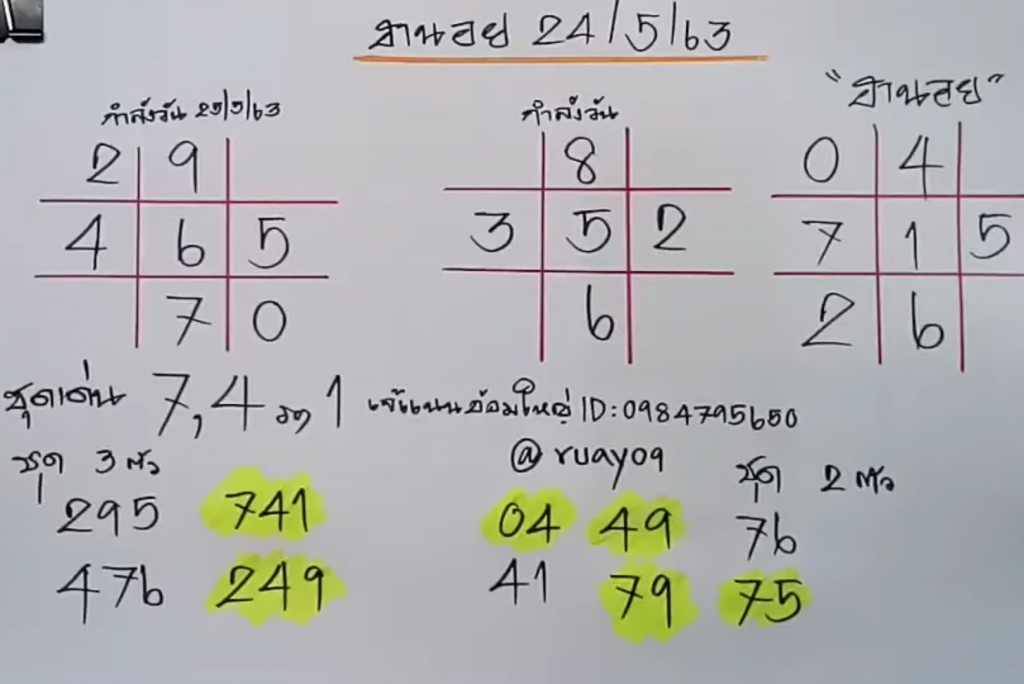 ฮานอย 24/5/63
"ฮานอย"
กำลังวัน 25/5/63
กำลังวัน
2 9
4 6 5
7 0
8
3 5 2
6
0 4
7 1 5
2 6
ชุดเด่น 7,4 รอง 1 เจ๊แนนอ้อมใหญ่ ID:0984795650
@ruay09
ชุด 3 ตัว
295 741
476 249
ชุด 2 ตัว
04 49 76
41 79 75